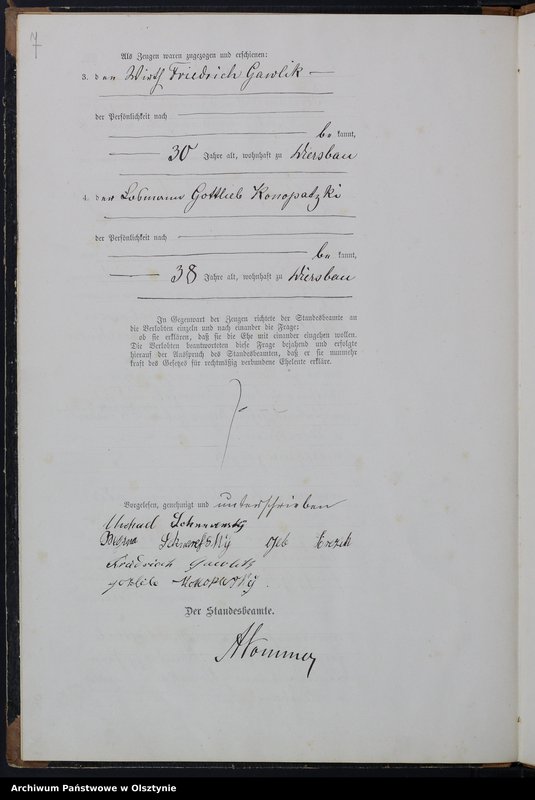 7
Als Zeugen waren zugezogen und erschienen:
3. der Wirth Friedrich Gawlik —
der Persönlichkeit nach
be kannt,
30 Jahre alt, wohnhaft zu Wiersbau
4. der Losmann Gottlieb Konopatzki
der Persönlichkeit nach
be kannt,
38 Jahre alt, wohnhaft zu Wiersbau
In Gegenwart der Zeugen richtete der Standesbeamte an
die Verlobten einzeln und nach einander die Frage:
ob sie erklären, daß sie die Ehe mit einander eingehen wollen.
Die Verlobten beantworteten diese Frage bejahend und erfolgte
hierauf der Ausspruch des Standesbeamten, daß er sie nunmehr
kraft des Gesetzes für rechtmäßig verbundene Eheleute erkläre.
Vorgelesen, genehmigt und unterschrieben
geb
Friedrich Gawlik
Der Standesbeamte.
Archiwum Państwowe w Olsztynie